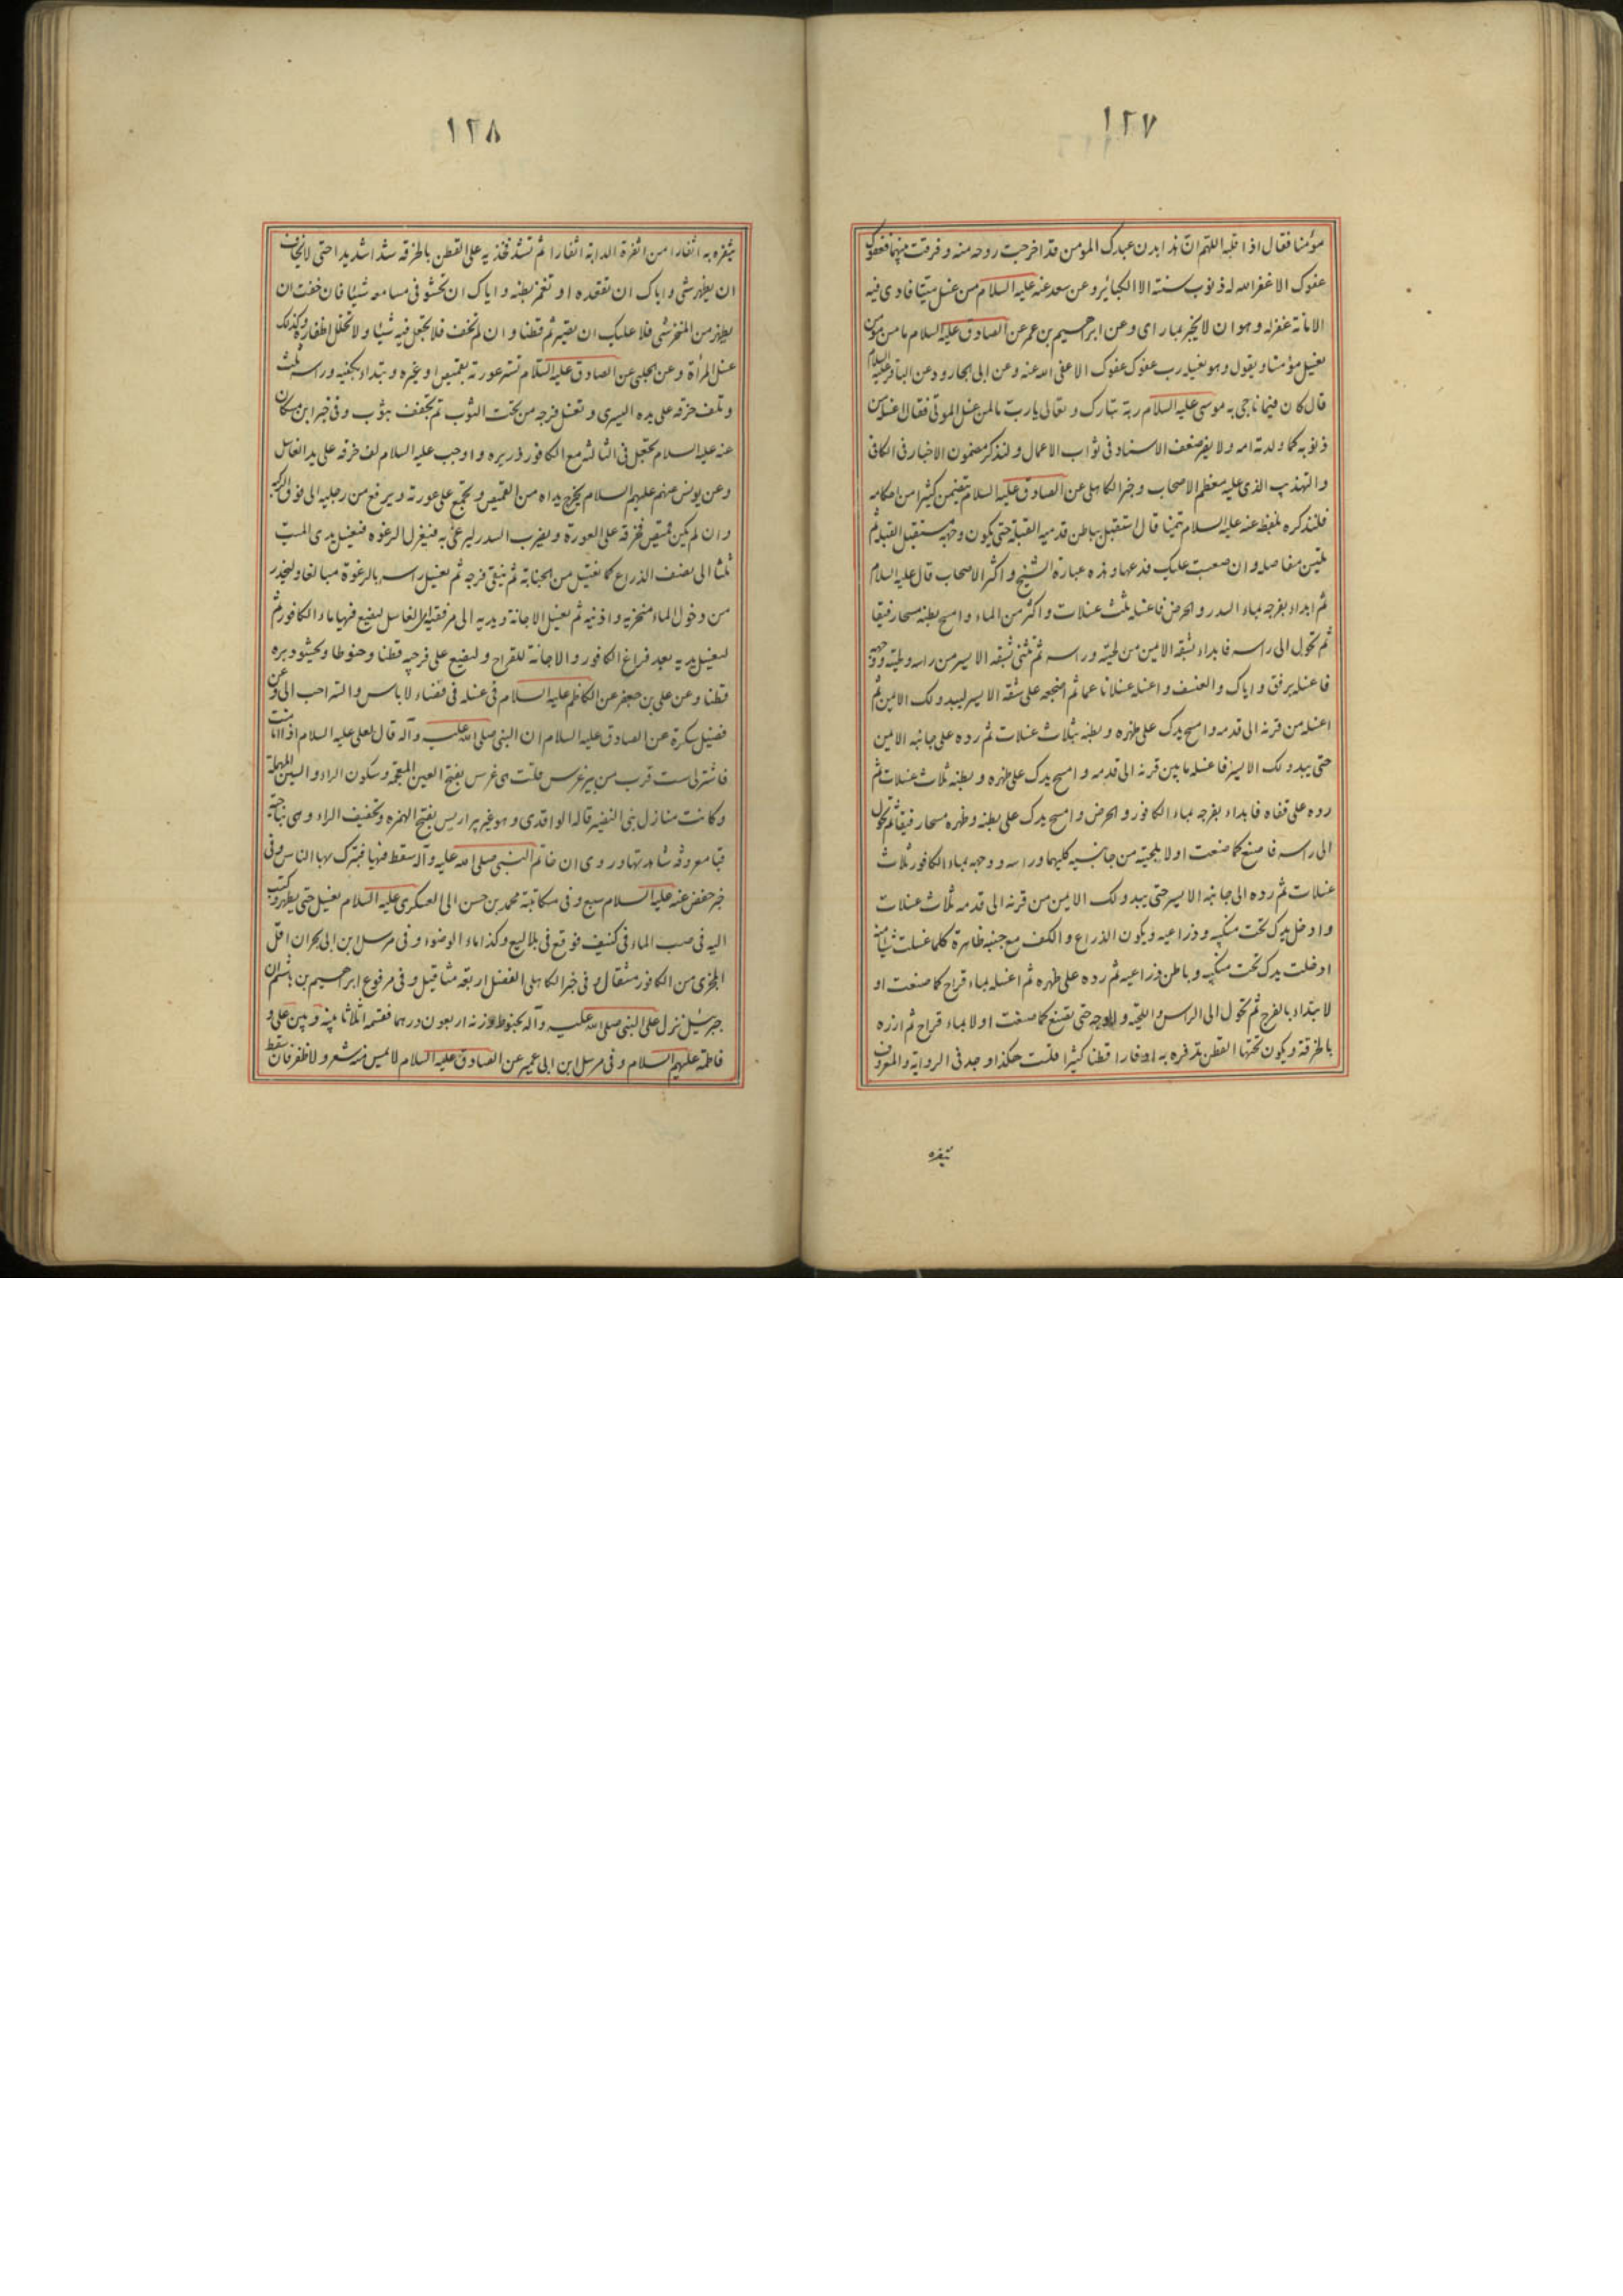 ١٢٧
مؤمنا فقال اذا قلبه اللهم ان هذا بدن عبدك المومن قد اخرجت روحه منه و فرقت بينهما فعفوك
عفوك الا غفر الله له ذنوب سنته الا الكبائر و عن سعد عنه عليه السلام من غسل ميتا فادى فيه
الامانة غفر له و هو ان لا يخبر بما راى و عن ابرهيم بن عمر عن الصادق عليه السلام ما من مومن
يغسل مؤمنا و يقول و هو يغسله رب عفوك عفوك الا عفى الله عنه و عن ابى الجارود عن الباقر عليه السلام
قال كان فيما ناجى به موسى عليه السلام ربه تبارك و تعالى يا رب ما لمن غسل الموتى فقال اغسله من
ذنوبه كما ولدته امه و لا يضر ضعف الاسناد فى ثواب الاعمال و لنذكر مضمون الاخبار فى الكافى
و التهذيب الذى عليه معظم الاصحاب و خبر الكاهلى عن الصادق عليه السلام يتضمن كثيرا من احكامه
فلنذكره بلفظه عنه عليه السلام تيمنا قال استقبل بباطن قدميه القبلة حتى يكون وجهه مستقبل القبلة ثم
تلين مفاصله و ان صعبت عليك فدعها و هذه عبارة الشيخ و اكثر الاصحاب قال عليه السلام
ثم ابداء بفرجه بماء السدر و الحرض فاغسله ثلث غسلات و اكثر من الماء و امسح بطنه مسحا رفيقا
ثم تحول الى راسه فابداء بشقه الايمن من لحيته و راسه ثم تثنى بشقه الايسر من راسه و لحيته و وجهه
فاغسله برفق و اياك و العنف و اغسله غسلا ناعما ثم اضجعه على شقه الايسر ليبدو لك الايمن ثم
اغسله من قرنه الى قدمه و امسح يدك على ظهره و بطنه بثلاث غسلات ثم رده على جانبه الايمن
حتى يبدو لك الايسر فاغسله ما بين قرنه الى قدمه و امسح يدك على ظهره و بطنه ثلاث غسلات ثم
رده على قفاه فابداء بفرجه بماء الكافور و الحرض و امسح يدك على بطنه و ظهره مسحا رفيقا ثم تحول
الى راسه فاصنع كما صنعت اولا بلحيته من جانبيه كليهما و راسه و وجهه بماء الكافور ثلاث
غسلات ثم رده الى جانبه الايسر حتى يبدو لك الايمن من قرنه الى قدمه ثلاث غسلات
و ادخل يدك تحت منكبيه و ذراعيه و يكون الذراع و الكف مع جنبه ظاهرة كلما غسلت شيئا منه
ادخلت يدك تحت منكبيه و باطن ذراعيه ثم رده على ظهره ثم اغسله بماء قراح كما صنعت او
لا بتداء بالفرج ثم تحول الى الراس و اللحية و الوجه حتى تصنع كما صنعت اولا بماء قراح ثم ازره
بالخرقة و يكون تحتها القطن تذفره به اذفارا قطنا كثيرا قلت هكذا وجد فى الرواية و المعروف
يثفره
١٢٨
يثفره به اثفارا من اثفرة الدابة اثفارا ثم تشد فخذيه على القطن بالخرقه شدا شديدا حتى لا تخاف
ان يظهر شى و اياك ان تقعده او تغمز بطنه و اياك ان تحشو فى مسامعه شيئا فان خفت ان
يظهر من المنخر شى فلا عليك ان تصير ثم قطنا و ان لم تخف فلا تجعل فيه شيئا و لا تخلل اظفاره و كذلك
غسل المرأة و عن الحلبى عن الصادق عليه السلام تستر عورته بقميص او غيره و تبتداء بكفيه و راسه ثلث
و تلف خرقه على يده اليسرى و تغسل فرجه من تحت الثوب ثم تجفف بثوب و فى خبر ابن مسكان
عنه عليه السلام تجعل فى الثالثه مع الكافور ذريره و اوجب عليه السلام لف خرقه على يد الغاسل
و عن يونس عنهم عليهم السلام يخرج يداه من القميص و يجمع على عورته و يرفع من رجليه الى فوق الركبه
و ان لم يكن قميص فخرقه على العورة و يضرب السدر ليرغى به فتعزل الرغوه فتغسل يدى الميت
ثلثا الى نصف الذراع كما تغتسل من الجنابة ثم ينقى فرجه ثم تغسل راسه بالرغوة مبالغا و ليحذر
من دخول الماء منخريه و اذنيه ثم يغسل الاجانة و يديه الى مرفقيه الغاسل ليضع فيها ماء الكافور ثم
ليغسل يديه بعد فراغ الكافور و الاجانة للقراح و ليضع على فرجيه قطنا و حنوطا و يحشو دبره
قطنا و عن على بن جعفر عن الكاظم عليه السلام فى غسله فى فضاء لا باس و الستر احب الى و عن
فضيل سكرة عن الصادق عليه السلام ان النبى صلى الله عليه و آله قال لعلى عليه السلام اذا انا مت
فاشتر لى ست قرب من بير غرس قلت هى غرس بفتح الغين المعجمة و سكون الراء و السين المهملة
و كانت منازل بنى النضير قاله الواقدى و هو غير بير اريس بفتح الهمزه و تخفيف الراء و هى بناحية
قبا معروفة شاهدتها و روى ان خاتم النبى صلى الله عليه و آله سقط فيها فتبرك بها الناس و فى
خبر حفص عنه عليه السلام سبع و فى مكاتبة محمد بن حسن الى العسكرى عليه السلام يغسل حتى يطهر و كتب
اليه فى صب الماء فى كنيف فوقع فى بلاليع و كذا ماء الوضوء و فى مرسل ابن ابى نجران اقل
المجزى من الكافور مثقال و فى خبر الكاهلى الفضل اربعة مثاقيل و فى مرفوع ابرهيم بن هاشم ان
جبرئيل نزل على النبى صلى الله عليه و آله بحنوط وزنه اربعون درهما فقسمه اثلاثا بينه و بين على و
فاطمة عليهم السلام و فى مرسل ابن ابى عمير عن الصادق عليه السلام لا يمس منه شعر و لا ظفر فان سقط